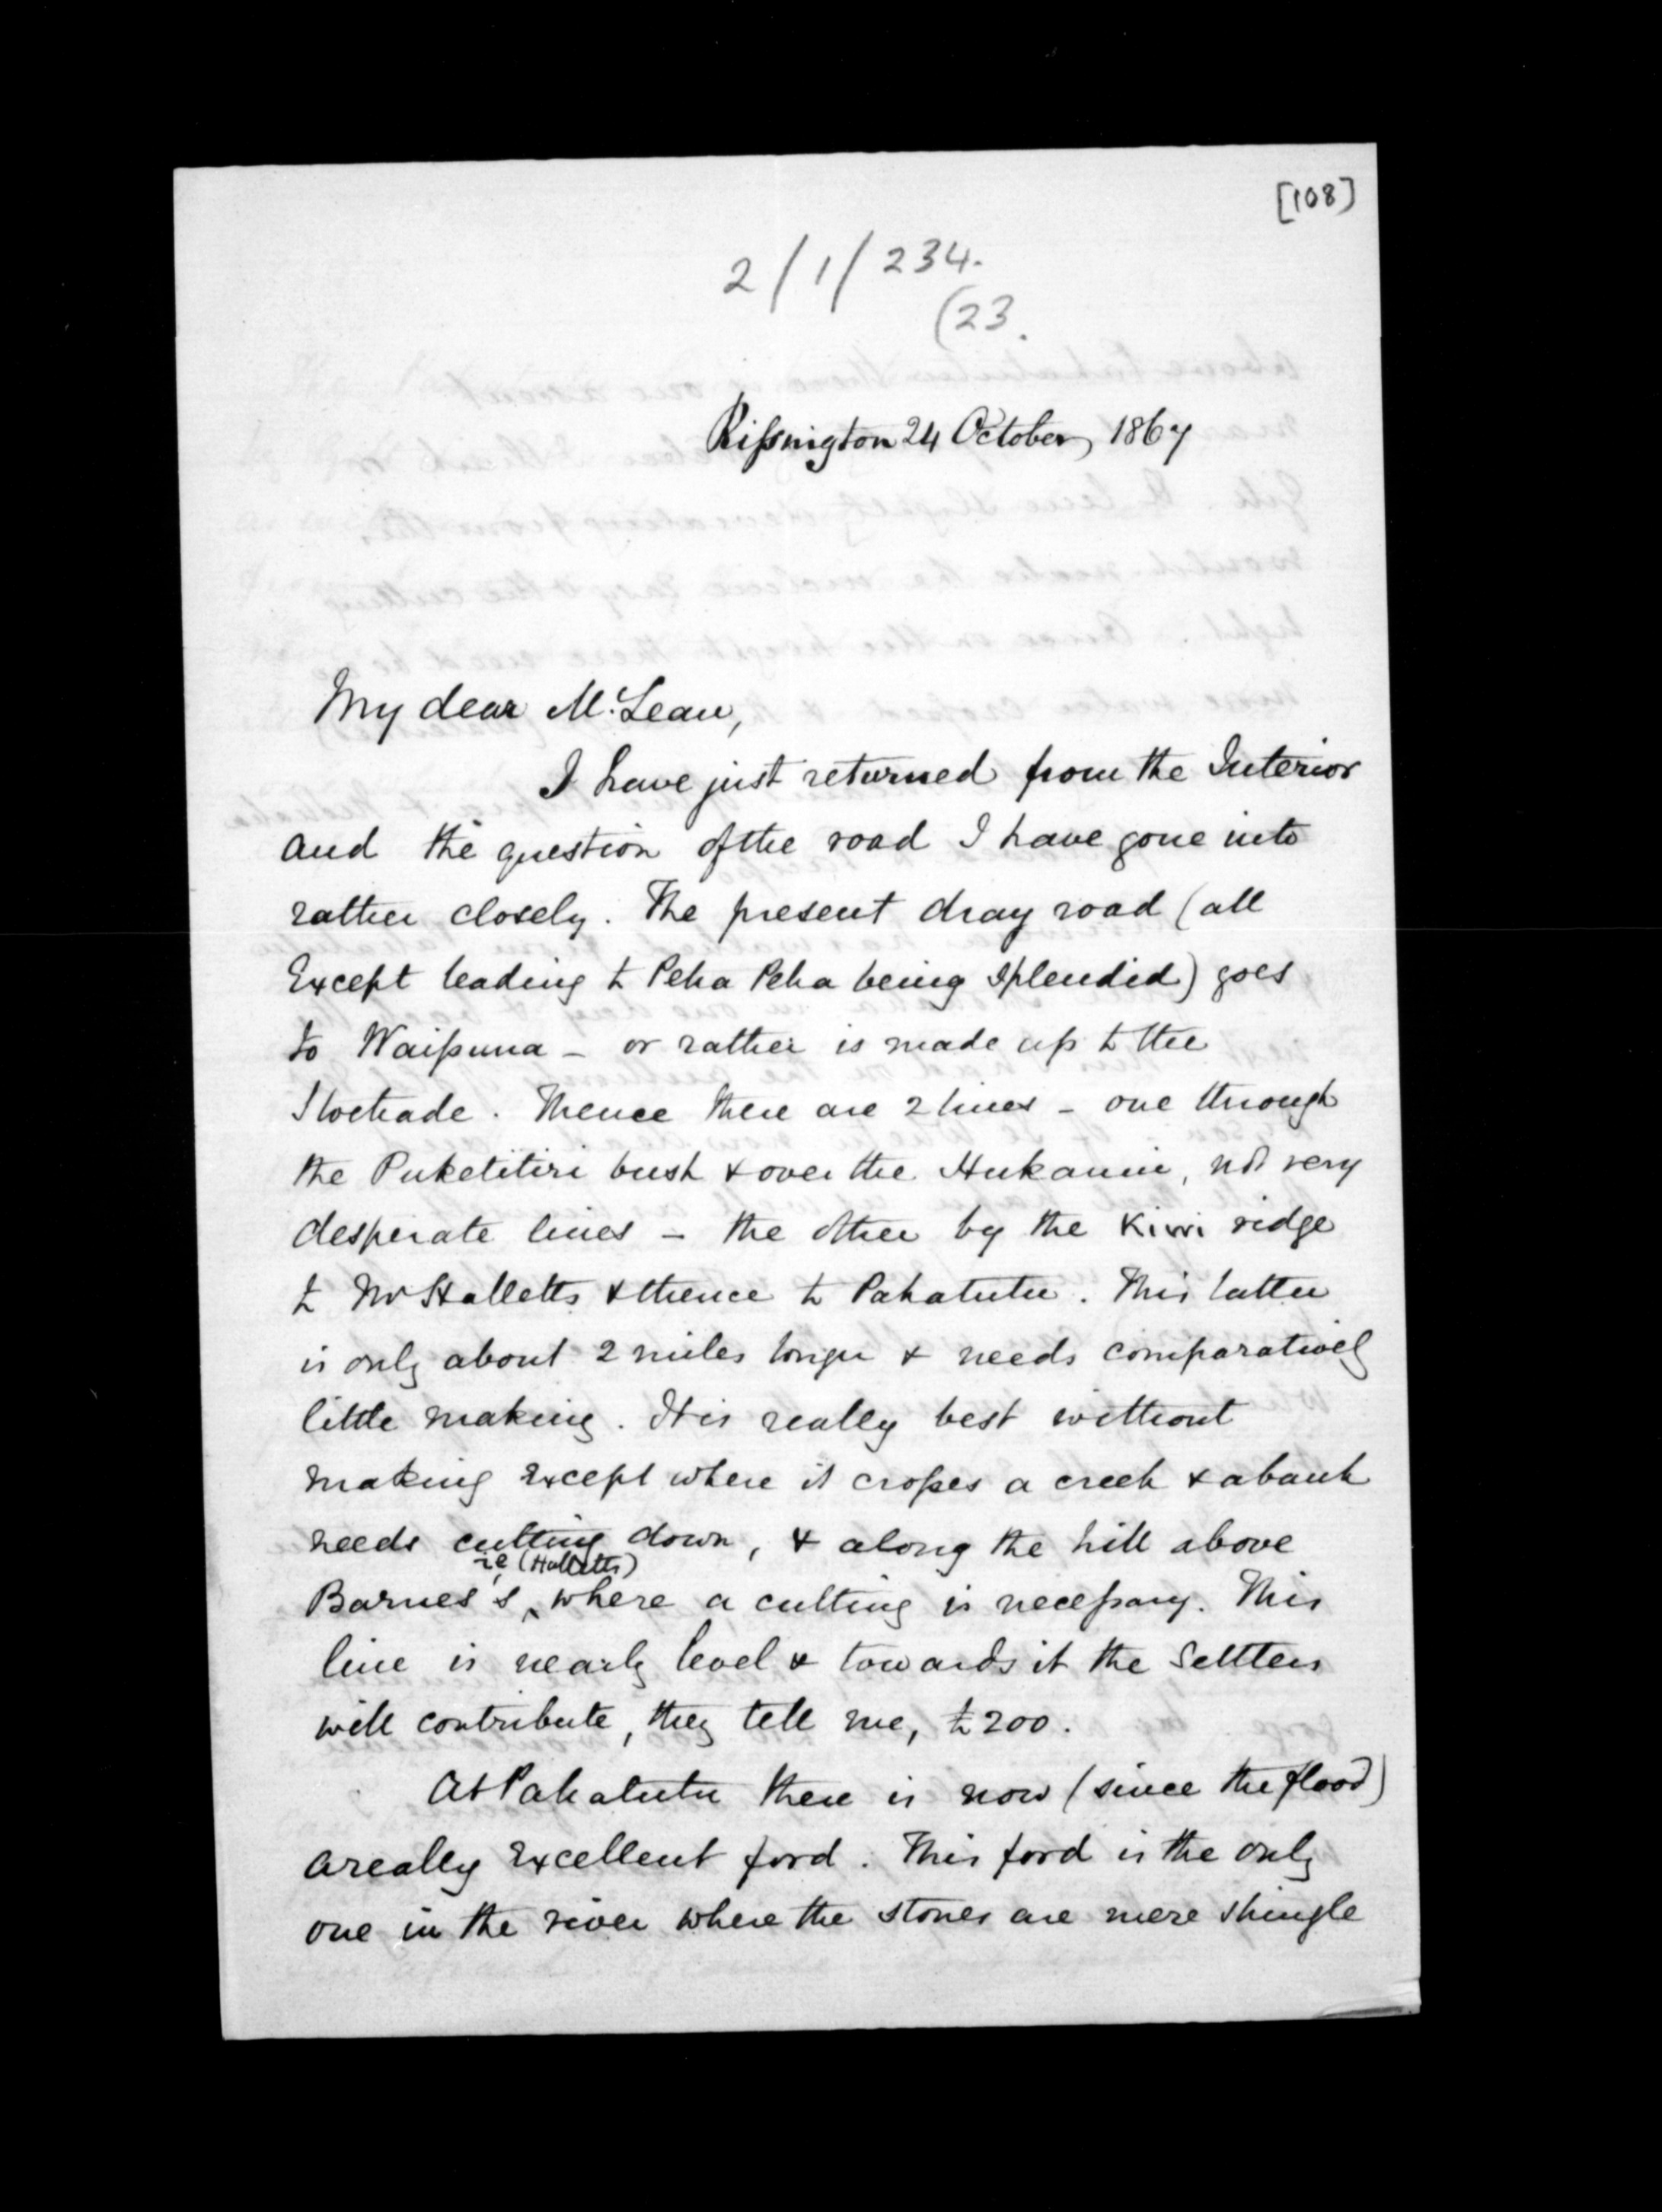 [108]
2/1/234.
(23.
Rissington 24 October, 1867
My dear McLean,
I have just returned from the Interior
and the question of the road I have gone into
rather closely. The present dray road (all
Except leading to Peka Peka being splendid) goes
to Waipuna - or rather is made up to the
Stockade. Thence there are 2 lines - one through
the Puketitiri bush & over the Hukanui, not very
desperate lines - the other by the Kiwi ridge
to Mr Halletts & thence to Pakatutu. This latter
is only about 2 miles longer & needs comparatively
little making. It is really best without
making except where it crosses a creek & a bank
needs cutting down, & along the hill above
ie (Halletts)
Barnes's, where a cutting is necessary. This
line is nearly level & towards it the Settlers
will contribute, they tell me, £200.
At Pakatutu there is now (since the flood)
a really excellent ford. This ford is the only
one in the river where the stones are mere shingle